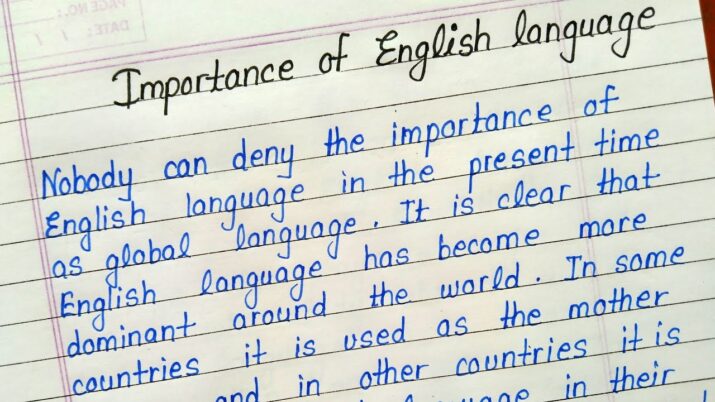 PAGE NO.:
DATE: / /
Importance of English language
Nobody can deny the importance of
English language in the present time
as global language. It is clear that
English language has become more
dominant around the world. In some
countries it is used as the mother
and in other countries it is
language in their